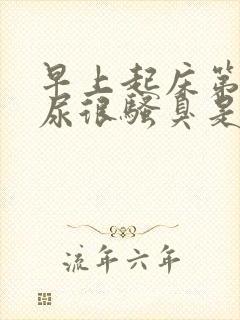 早上起床第
尿很骚臭是
流年六年